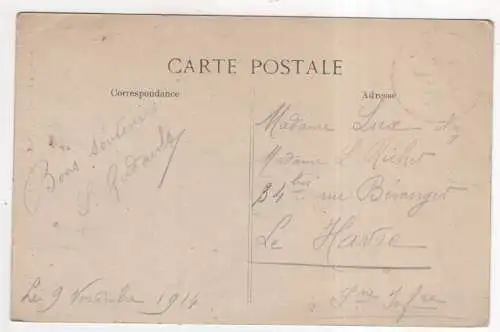 CARTE POSTALE
Correspondance
Adresse
Bons souvenirs
Le 9 Novembre 1914
Madame
Madame L Richer
34 bis rue Béranger
Le Havre
Sne Infre